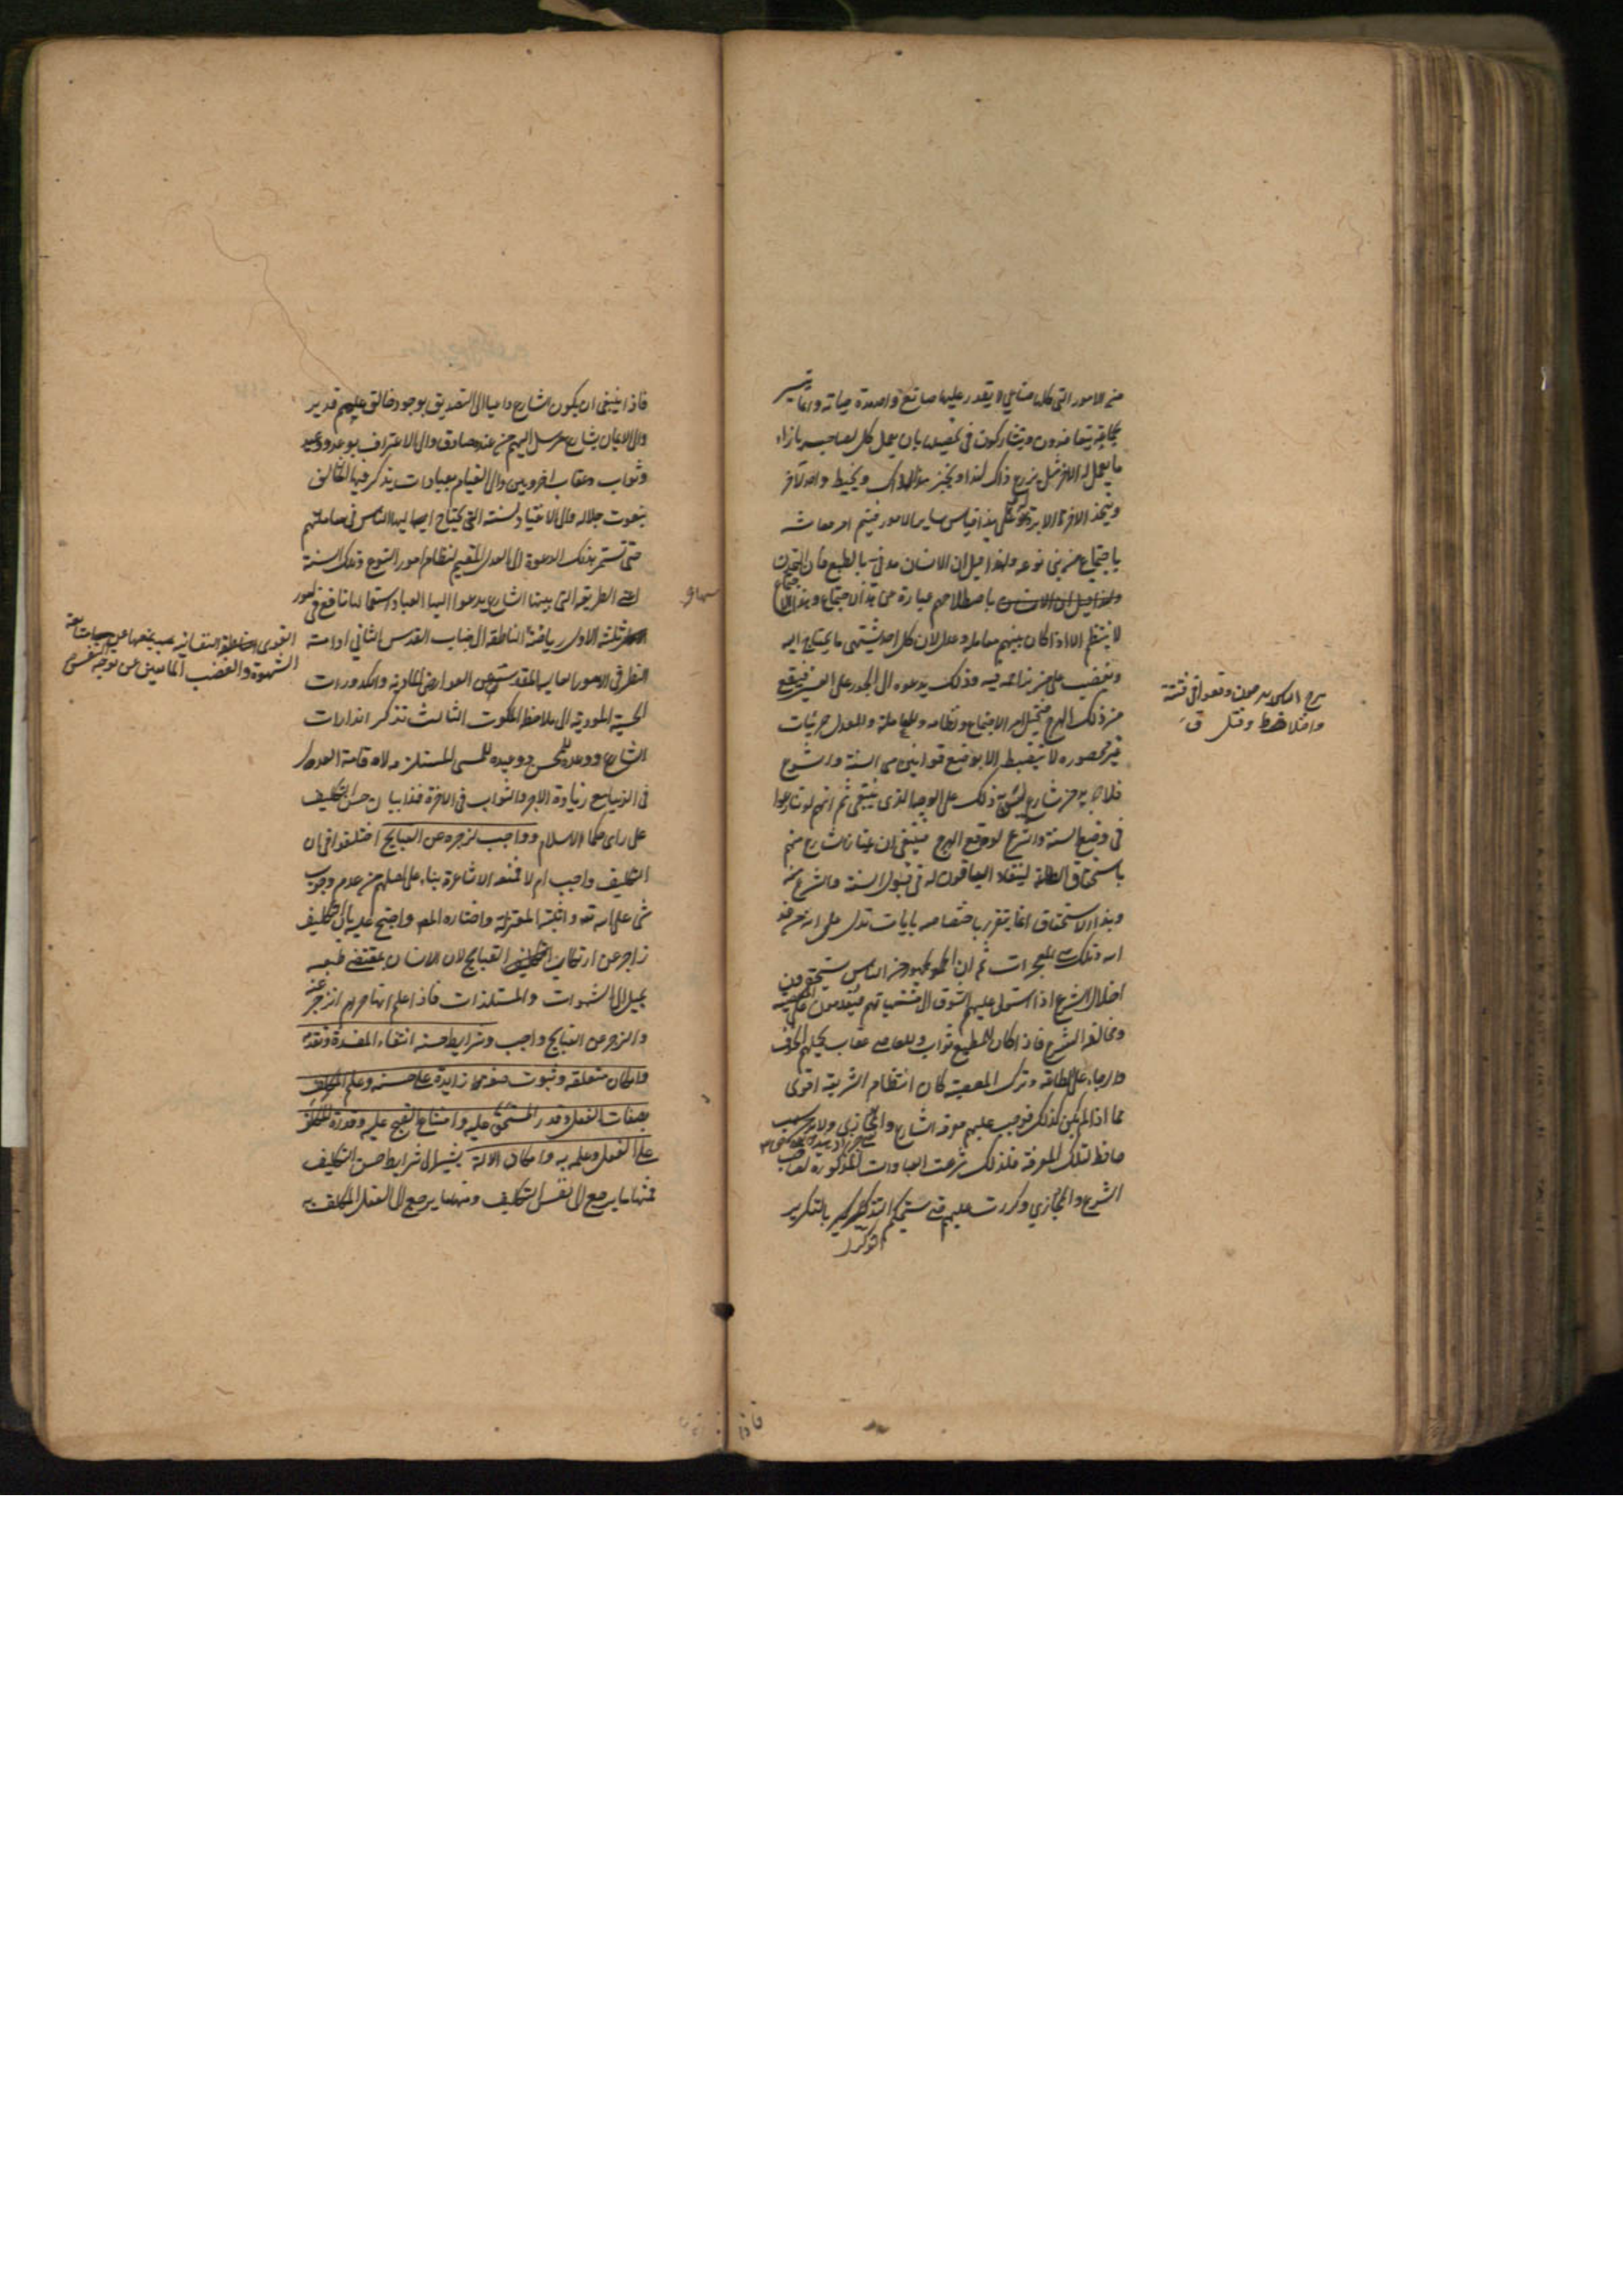 من الامور التي كلها صناعي لا يقدر عليها صانع واحد مدة حياته وانما تتيسر
بجماعة يتعاضدون ويتشاركون في تحصيلها بان يعمل كل لصاحبه بازاء
ما يعمل له الاخر مثل يزرع ذاك لهذا ويخبز هذا لذاك ويخيط واحد لآخر
ويتخذ الاخر الابرة له وعلى هذا قياس ساير الامور فيتم امر معاشه
باجتماع من بني نوعه ولهذا قيل ان الانسان مدني بالطبع فان التمدن
باصطلاحهم عبارة عن هذا الاجتماع وهذا الاجتماع
لا ينتظم الا اذا كان بينهم معاملة وعدل لان كل احد يشتهي ما يحتاج اليه
ويغضب على من يزاحمه فيه وذلك يدعوه الى الجور على الغير فيقع
من ذلك الهرج فيختل امر الاجتماع ونظامه وللمعاملة والعدل جزئيات
غير محصورة لا تنضبط الا بوضع قوانين هي السنة والشرع
فلا بد من شارع يسن ذلك على الوجه الذي ينبغي ثم انهم لو تنازعوا
في وضع السنة والشرع لوقع الهرج فينبغي ان يمتاز الشارع منهم
باستحقاق الطاعة لينقاد الباقون له في قبول السنة والشرع منه
وهذا الاستحقاق انما يتقرر باختصاصه بآيات تدل على انه من عند
الله وتلك هي المعجزات ثم ان الجمهور من الناس يستحقرون
اختلال الشرع اذا استولى عليهم الشوق الى مشتهياتهم فيقدمون على المعصية
ومخالفة الشرع فاذا كان للمطيع ثواب وللعاصي عقاب يحملهم الخوف
والرجاء على الطاعة وترك المعصية كان انتظام الشريعة اقوى
مما اذا لم يكن كذلك فوجب عليهم معرفة الشارع والمجازي ولا بد من سبب
حافظ لتلك المعرفة فلذلك شرعت العبادات المذكورة لصاحب
الشرع والمجازي وكررت عليهم حتى يستحكم التذكير بالتكرير
هرج
واختلاط وقتل ق
فاذا ينبغي ان يكون الشارع داعيا الى التصديق بوجود خالق عليم قدير
والى الايمان بشارع مرسل اليهم من عنده صادق والى الاعتراف بوعد ووعيد
وثواب وعقاب اخرويين والى القيام بعبادات يذكر فيها الخالق
بنعوت جلاله والى الانقياد لسنته التي يحتاج اليها الناس في معاملاتهم
حتى تستمر بذلك الدعوة الى العدل المقيم لنظام امور النوع وتلك السنة
اعني الطريقة التي بينها الشارع يدعوا اليها العباد استعمالها نافع في امور
ثلثة الاول رياضة الناطقة الى جناب القدس الثاني ادامة
النظر في الامور العالية المقدسة عن العوارض المادية والكدورات
الحسية المودية الى ملاحظة الملكوت الثالث تذكر انذارات
الشارع ووعده للمحسن ووعيده للمسي المستلزمة لاقامة العدل
في الدنيا مع زيادة الاجر والثواب في الاخرة فهذا بيان حسن التكليف
على راى حكماء الاسلام وواجب لزجره عن القبايح اختلفوا في ان
التكليف واجب ام لا فمنعه الاشاعرة بناء على اصلهم من عدم وجوب
شي على الله تعه واثبته المعتزلة واختاره المصه واحتج عليه بان التكليف
زاجر عن ارتكاب القبايح لان الانسان بمقتضى طبعه
يميل الى الشهوات والمستلذات فاذا علم انها حرام انزجر عنه
والزجر عن القبايح واجب وشرايط حسنه انتفاء المفسدة وتقدمه
وامكان متعلقه وثبوت صفة زايدة على حسنه وعلم المكلف
بصفات الفعل وقدر المستحق عليه وامتناع القبيح عليه وقدرة المكلف
على الفعل وعلمه به وامكان الالة يشير الى شرايط حسن التكليف
فمنها ما يرجع الى نفس التكليف ومنها ما يرجع الى الفعل المكلف به
القوى النفسانية بمنعها عن متابعة
الشهوة والغضب المانعين عن توجه النفس